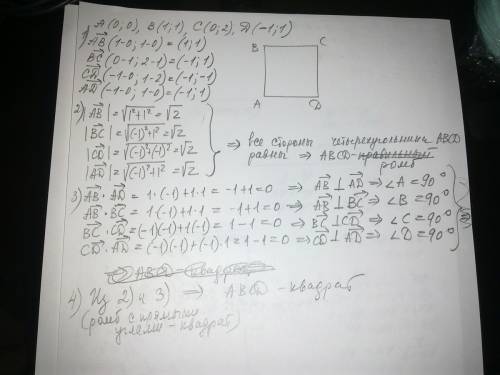 A(0;0), B(1;1), C(0;2), D(-1;1)
1) AB(1-0; 1-0) = (1; 1)
BC(0-1; 2-1) = (-1; 1)
CD(-1-0; 1-2) = (-1; -1)
AD(-1-0; 1-0) = (-1; 1)
B C
A D
2) |AB| = √1²+1² = √2
|BC| = √(-1)²+1² = √2
|CD| = √(-1)²+(-1)² = √2
|AD| = √(-1)²+1² = √2
⇒ все стороны четырехугольника ABCD
равны ⇒ ABCD - правильный
ромб
3) AB · AD = 1·(-1)+1·1 = -1+1=0 ⇒ AB ⊥ AD ⇒ ∠A = 90°
AB · BC = 1·(-1)+1·1 = -1+1=0 ⇒ AB ⊥ BC ⇒ ∠B = 90°
BC · CD = (-1)(-1)+1(-1) = 1-1=0 ⇒ BC ⊥ CD ⇒ ∠C = 90°
CD · AD = (-1)(-1)+(-1)·1 = 1-1=0 ⇒ CD ⊥ AD ⇒ ∠D = 90°
⇒ ABCD - квадрат
4) Из 2) и 3) ⇒ ABCD - квадрат
(ромб с прямыми
углами - квадрат)